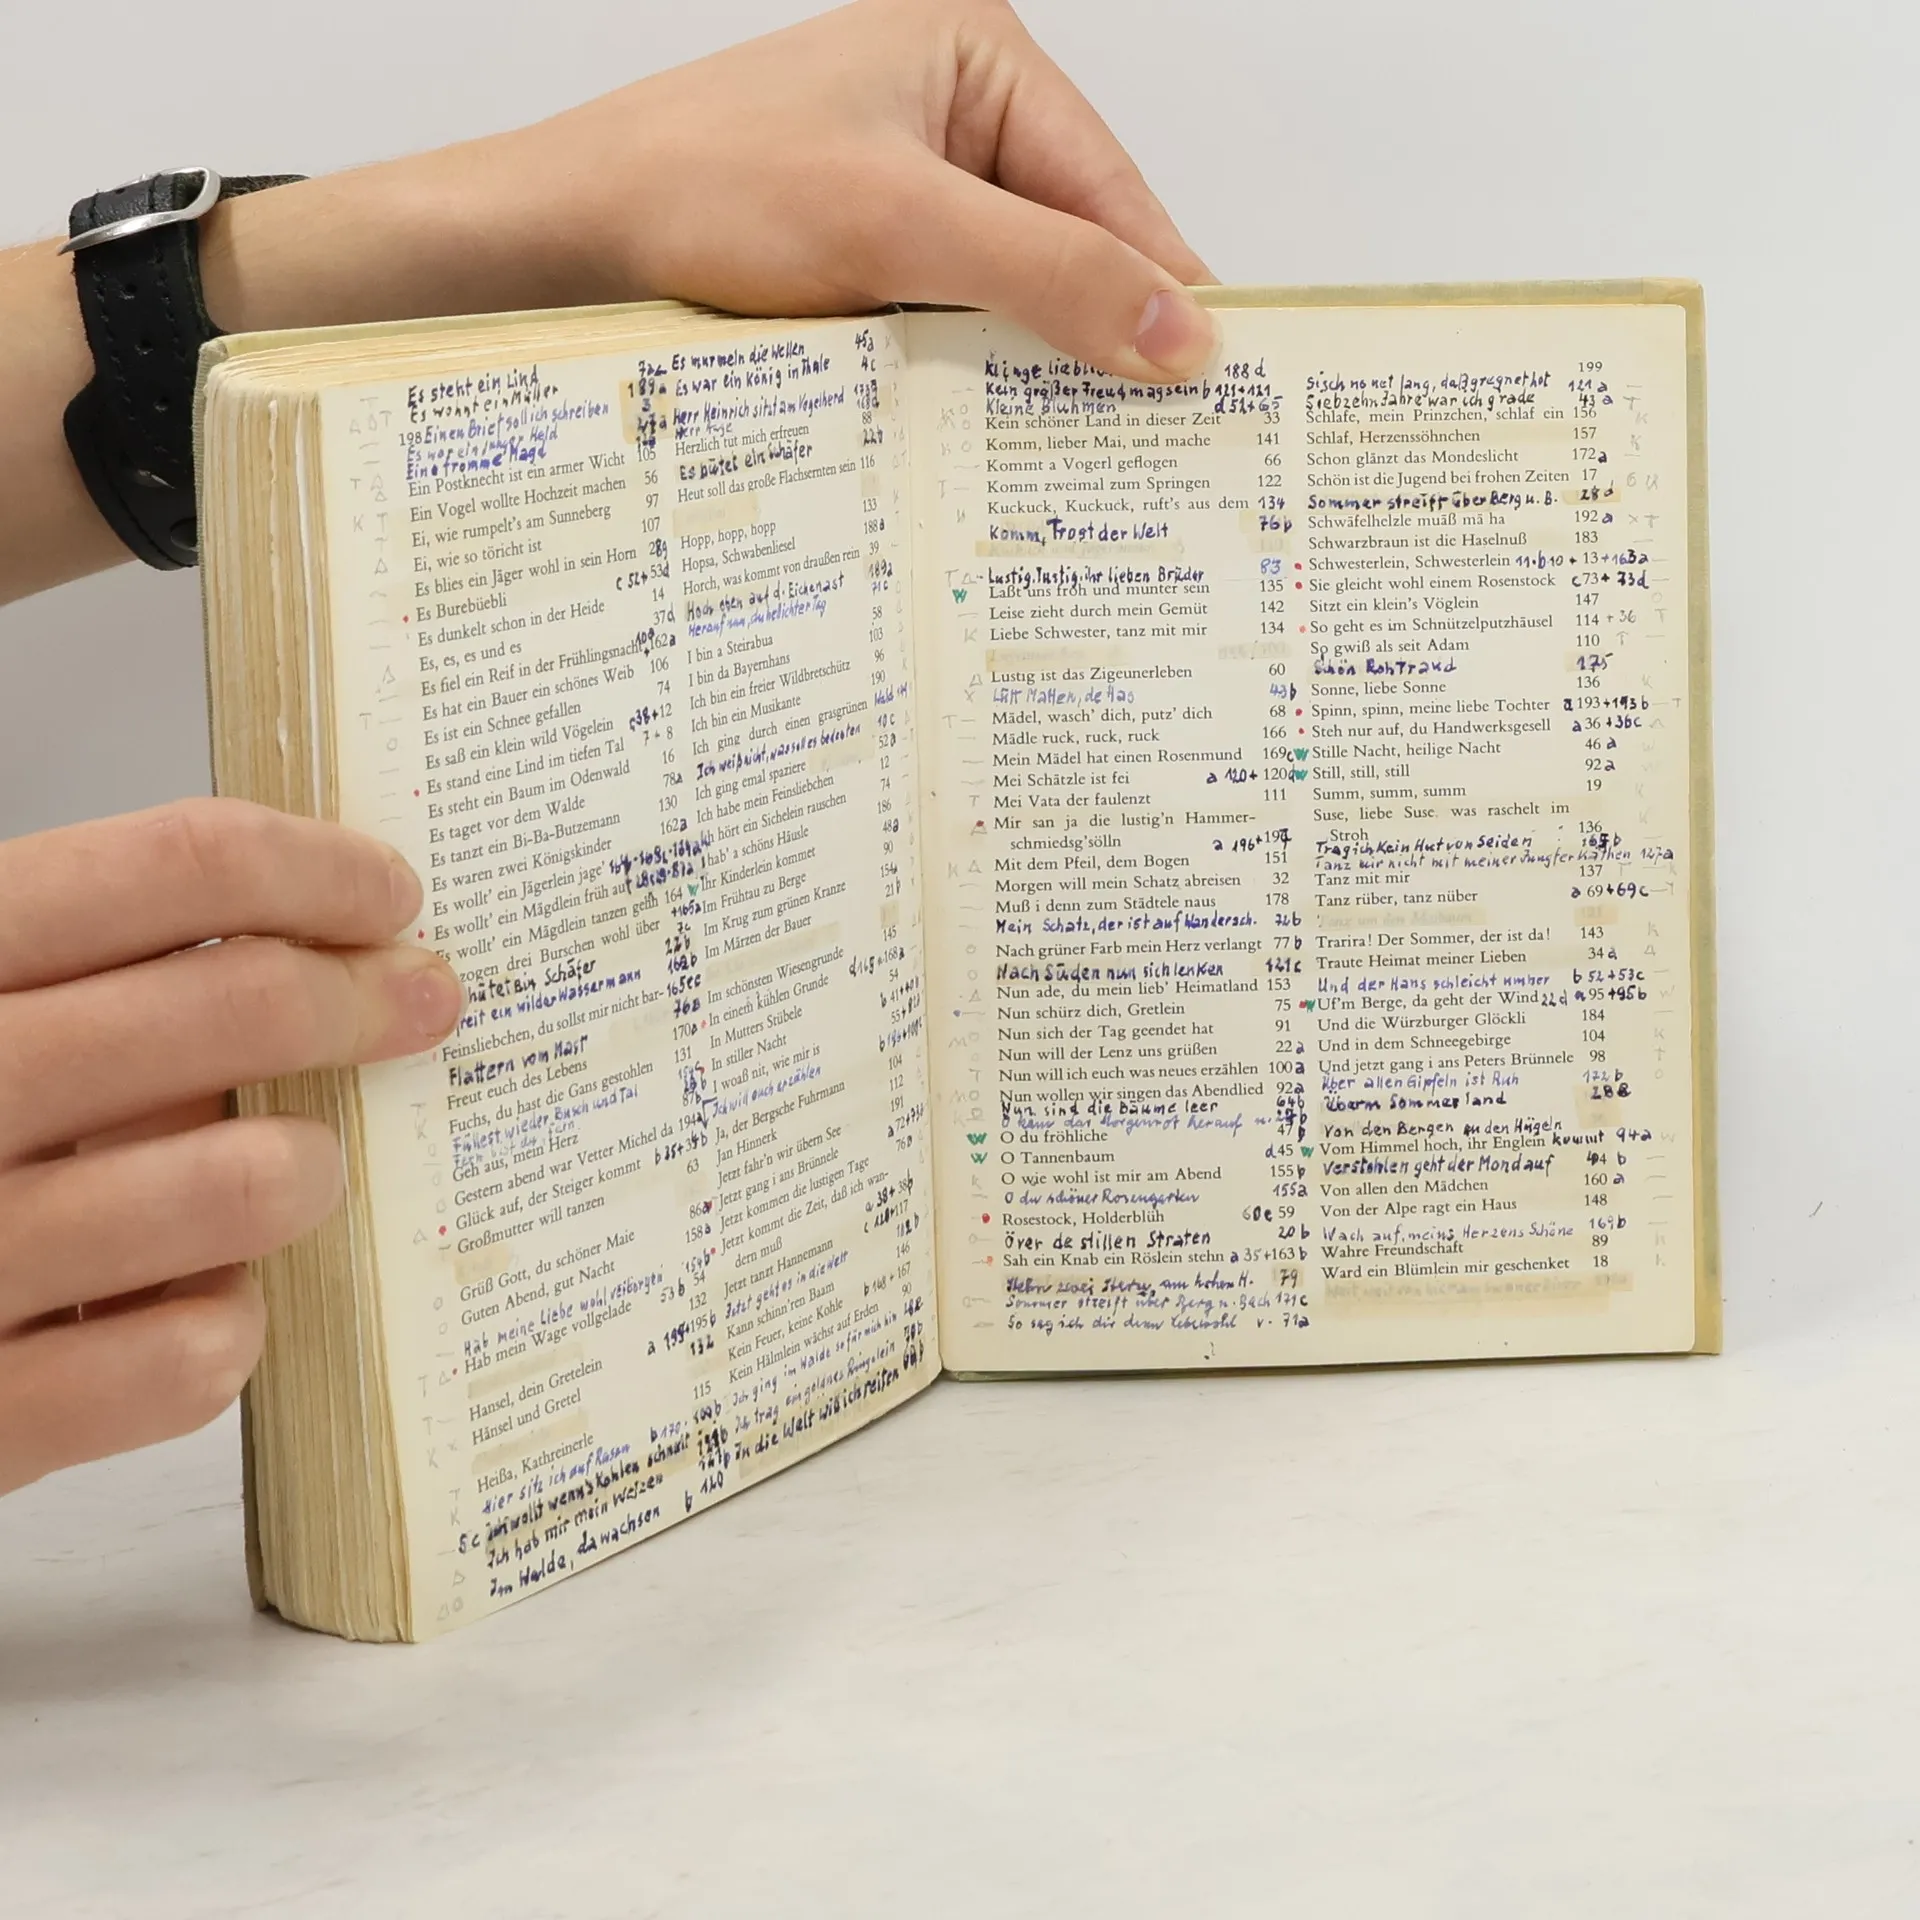 Es steht ein Lind 7a
Es wohnt ein Müller 189a
198 Einen Brief soll ich schreiben 3
Es war ein junger Held
Eine fromme Magd
Ein Postknecht ist ein armer Wicht 105
Ein Vogel wollte Hochzeit machen 56
Ei, wie rumpelt's am Sunneberg 97
Ei, wie so töricht ist 107
Es blies ein Jäger wohl in sein Horn
Es Burebüebli c 52+53d
Es dunkelt schon in der Heide 14
Es, es, es und es 37d
Es fiel ein Reif in der Frühlingsnacht 162a
Es hat ein Bauer ein schönes Weib 106
Es ist ein Schnee gefallen 74
Es saß ein klein wild Vögelein c38+12
Es stand eine Lind im tiefen Tal 7+8
Es steht ein Baum im Odenwald 16
Es taget vor dem Walde 78a
Es tanzt ein Bi-Ba-Butzemann 130
Es waren zwei Königskinder 162a
Es wollt' ein Jägerlein jage'
Es wollt' ein Mägdlein früh auf
Es wollt' ein Mägdlein tanzen gehn 164
zogen drei Burschen wohl über +165a
hütet ein Schäfer 22b
freit ein wilder Wassermann 162b
Feinsliebchen, du sollst mir nicht bar- 165cc
Flattern vom Mast 76a
Freut euch des Lebens 170a
Fuchs, du hast die Gans gestohlen 131
Füllest wieder Busch und Tal
Geh aus, mein Herz 87b
Gestern abend war Vetter Michel da 194a
Glück auf, der Steiger kommt b 35+34b
Großmutter will tanzen 63
Grüß Gott, du schöner Maie 86a
Guten Abend, gut Nacht 158a
Hab meine Liebe wohl verborgen 154b
Hab mein Wage vollgelade 53b 54
132
Hansel, dein Gretelein a 194+195b
Hänsel und Gretel 132
115
Heißa, Kathreinerle b 170
Hier sitz ich auf Rasen
5c Ich wollt wenn's Kohlen schneit
Ich hab mir mein Weizen
Im Walde, da wachsen b 120
Es murmeln die Wellen 45a
Es war ein König in Thule 4c
Herr Heinrich sitzt am Vogelherd 173a
Herzlich tut mich erfreuen 88
Es hütet ein Schäfer 22b
Heut soll das große Flachsernten sein 116
Hopp, hopp, hopp 133
Hopsa, Schwabenliesel 188a
Horch, was kommt von draußen rein 39
Hoch oben auf d. Eichenast 189a
Herauf nun, du hellichter Tag 71c
I bin a Steirabua 58
I bin da Bayernhans 103
Ich bin ein freier Wildbretschütz 96
Ich bin ein Musikante 190
Ich ging durch einen grasgrünen Wald
Ich weiß nicht, was soll es bedeuten 10c
Ich ging emal spaziere 52a
Ich habe mein Feinsliebchen 12
Ich hört ein Sichelein rauschen 74
Ich hab' a schöns Häusle 186
W Ihr Kinderlein kommet 48a
Im Frühtau zu Berge 90
Im Krug zum grünen Kranze 154a
Im Märzen der Bauer 21b
Im schönsten Wiesengrunde 145
In einem kühlen Grunde d165+168a
In Mutters Stübele 54
In stiller Nacht
I woaß nit, wie mir is
Ich will euch erzählen
Ja, der Bergsche Fuhrmann 104
Jan Hinnerk 112
Jetzt fahr'n wir übern See 191
Jetzt gang i ans Brünnele a 72+73d
Jetzt kommen die lustigen Tage 76a
Jetzt kommt die Zeit, daß ich wan-
dern muß a 38+38b
Jetzt tanzt Hannemann c 120+117
Jetzt geht es in die Welt 112b
Kann schinn'ren Baam 146
Kein Feuer, keine Kohle b 148+167
Kein Hälmlein wächst auf Erden 90
Ich ging im Walde so für mich hin
Ich trag ein goldnes Ringelein
In die Welt will ich reiten
Klinge 188d
Kein größer Freud mag sein b 121+121
Kleine Bluhmen d 52+65
Kein schöner Land in dieser Zeit 33
Komm, lieber Mai, und mache 141
Kommt a Vogerl geflogen 66
Komm zweimal zum Springen 122
Kuckuck, Kuckuck, ruft's aus dem 134
Komm, Trost der Welt 76b
Lustig, lustig, ihr lieben Brüder 83
W Laßt uns froh und munter sein 135
Leise zieht durch mein Gemüt 142
Liebe Schwester, tanz mit mir 134
Lustig ist das Zigeunerleben 60
Lütt Matten, de Has 43b
Mädel, wasch' dich, putz' dich 68
Mädle ruck, ruck, ruck 166
Mein Mädel hat einen Rosenmund 169c
Mei Schätzle ist fei a 120+120d
Mei Vata der faulenzt 111
Mir san ja die lustig'n Hammer-
schmiedsg'sölln a 196+197
Mit dem Pfeil, dem Bogen 151
Morgen will mein Schatz abreisen 32
Muß i denn zum Städtele naus 178
Mein Schatz, der ist auf Wandersch. 72b
Nach grüner Farb mein Herz verlangt 77b
Nach Süden nun sich lenken 121c
Nun ade, du mein lieb' Heimatland 153
Nun schürz dich, Gretlein 75
Nun sich der Tag geendet hat 91
Nun will der Lenz uns grüßen 22a
Nun will ich euch was neues erzählen 100a
Nun wollen wir singen das Abendlied 92a
Nun sind die Bäume leer 64b
O käm das Morgenrot herauf
W O du fröhliche 47
W O Tannenbaum d45
O wie wohl ist mir am Abend 155b
O du schöner Rosengarten 155a
Rosestock, Holderblüh 60c 59
Över de stillen Straten 20b
Sah ein Knab ein Röslein stehn a 35+163b
Stehn zwei Stern am hohen H. 79
Sommer streift über Berg u. Bach 171c
So sag ich dir denn Lebewohl v. 71a
199
Sisch no net lang, daß gregnet hot 121a
Siebzehn Jahre war ich grade 43a
Schlafe, mein Prinzchen, schlaf ein 156
Schlaf, Herzenssöhnchen 157
Schon glänzt das Mondeslicht 172a
Schön ist die Jugend bei frohen Zeiten 17
Sommer streift über Berg u. B. 28d
Schwäfelhelzle muäß mä ha 192a
Schwarzbraun ist die Haselnuß 183
Schwesterlein, Schwesterlein 11·b10+13+163a
Sie gleicht wohl einem Rosenstock c73+73d
Sitzt ein klein's Vöglein 147
So geht es im Schnützelputzhäusel 114+36
So gwiß als seit Adam 110
Schön Rohtraud 175
Sonne, liebe Sonne 136
Spinn, spinn, meine liebe Tochter a 193+193b
Steh nur auf, du Handwerksgesell a 36+36c
W Stille Nacht, heilige Nacht 46a
W Still, still, still 92a
Summ, summ, summ 19
Suse, liebe Suse, was raschelt im
Stroh 136
Trag ich kein Hut von Seiden
Tanz mir nicht mit meiner Jungfer Käthen 127a
Tanz mit mir 137
Tanz rüber, tanz nüber a 69+69c
Trarira! Der Sommer, der ist da! 143
Traute Heimat meiner Lieben 34a
Und der Hans schleicht umher b 52+53c
W Uf'm Berge, da geht der Wind 22d a 95+95b
Und die Würzburger Glöckli 184
Und in dem Schneegebirge 104
Und jetzt gang i ans Peters Brünnele 98
Über allen Gipfeln ist Ruh 122b
Überm Sommerland 28a
Von den Bergen zu den Hügeln
W Vom Himmel hoch, ihr Englein kommt 94a
Verstohlen geht der Mond auf
Von allen den Mädchen 160a
Von der Alpe ragt ein Haus 148
Wach auf, meins Herzens Schöne 169b
Wahre Freundschaft 89
Ward ein Blümlein mir geschenket 18